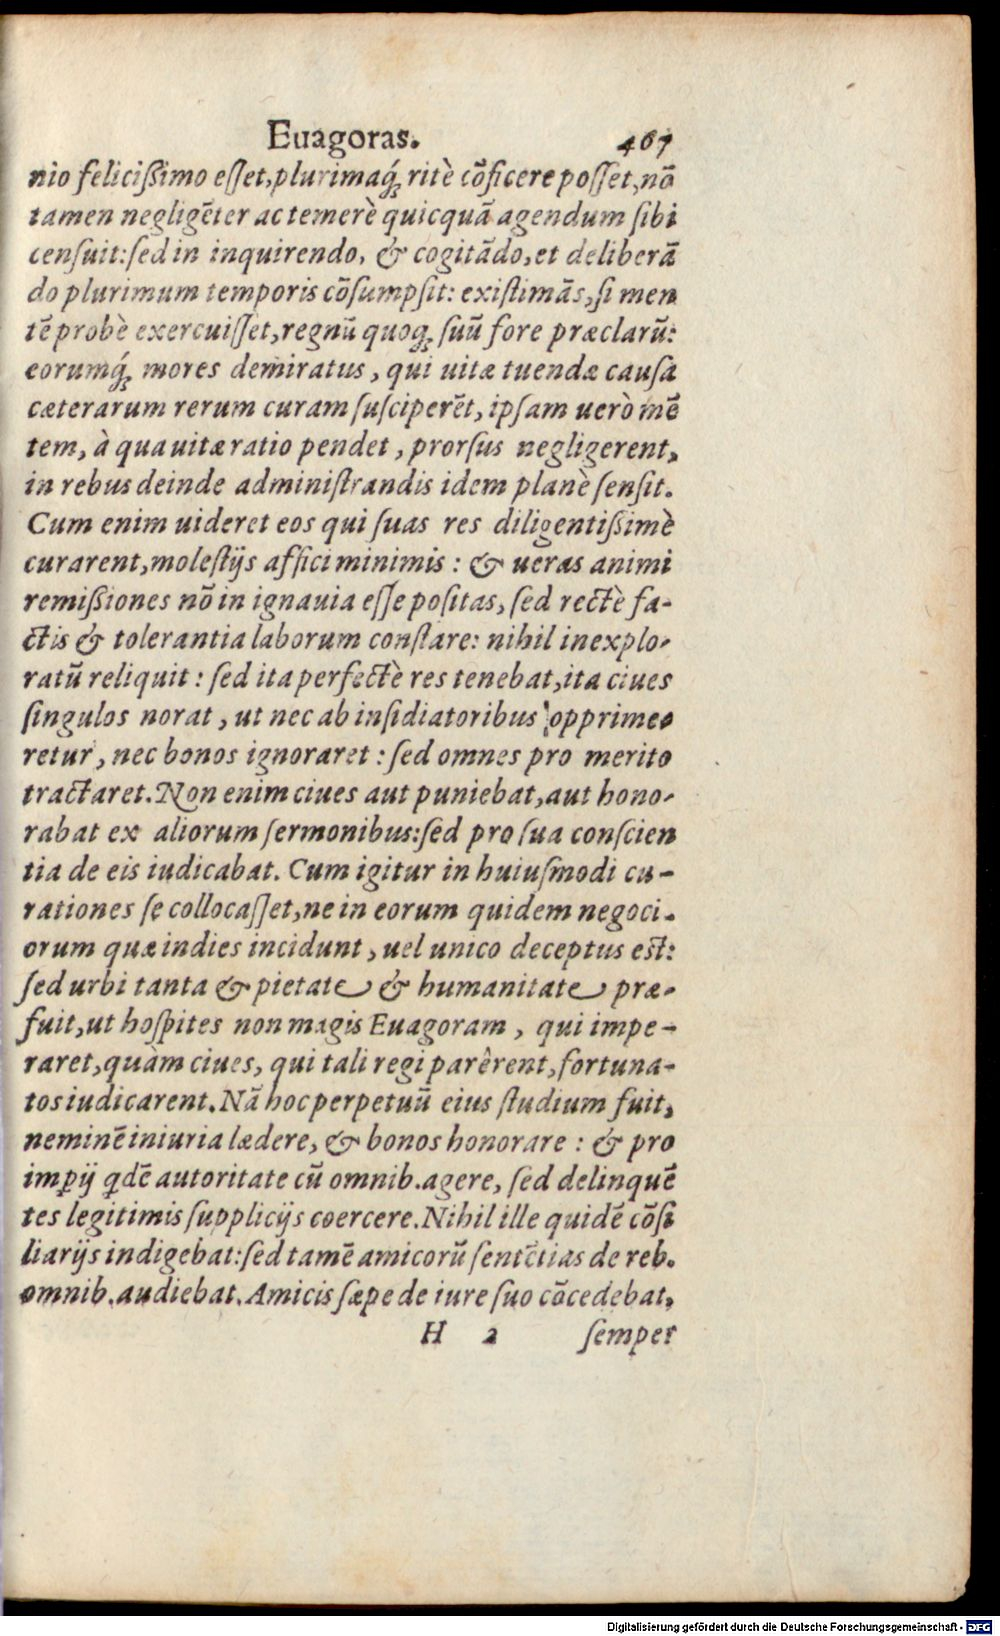 Euagoras. 467
nio feliciſsimo eſſet, plurimaq́ꝫ ritè cōficere poſſet, nō
tamen negligēter ac temerè quicquā agendum ſibi
cenſuit: ſed in inquirendo, & cogitādo, et deliberā
do plurimum temporis cōſumpſit: exiſtimās, ſi men
tē probè exercuiſſet, regnū quoqꝫ ſuū fore præclarū:
eorumq́ꝫ mores demiratus, qui uitæ tuendæ cauſa
cæterarum rerum curam ſuſciperēt, ipſam uerò mē
tem, à qua uitæ ratio pendet, prorſus negligerent,
in rebus deinde adminiſtrandis idem planè ſenſit.
Cum enim uideret eos qui ſuas res diligentiſsimè
curarent, moleſtijs affici minimis: & ueras animi
remiſsiones nō in ignauia eſſe poſitas, ſed rectè fa-
ctis & tolerantia laborum conſtare: nihil inexplo-
ratū reliquit: ſed ita perfectè res tenebat, ita ciues
ſingulos norat, ut nec ab inſidiatoribus opprime-
retur, nec bonos ignoraret: ſed omnes pro merito
tractaret. Non enim ciues aut puniebat, aut hono-
rabat ex aliorum ſermonibus: ſed pro ſua conſcien
tia de eis iudicabat. Cum igitur in huiuſmodi cu-
rationes ſe collocaſſet, ne in eorum quidem negoci-
orum quæ indies incidunt, uel unico deceptus eſt:
ſed urbi tanta & pietate & humanitate præ-
fuit, ut hoſpites non magis Euagoram, qui impe-
raret, quàm ciues, qui tali regi parêrent, fortuna-
tos iudicarent. Nā hoc perpetuū eius ſtudium fuit,
neminē iniuria lædere, & bonos honorare: & pro
imp̱ij qdē autoritate cū omnib. agere, ſed delinquē
tes legitimis ſupplicijs coercere. Nihil ille quidē cōſi
liarijs indigebat: ſed tamē amicorū ſentētias de reb.
omnib. audiebat. Amicis ſæpe de iure ſuo cōcedebat,
H 2 ſemper
Digitalisierung gefördert durch die Deutsche Forschungsgemeinschaft - DFG